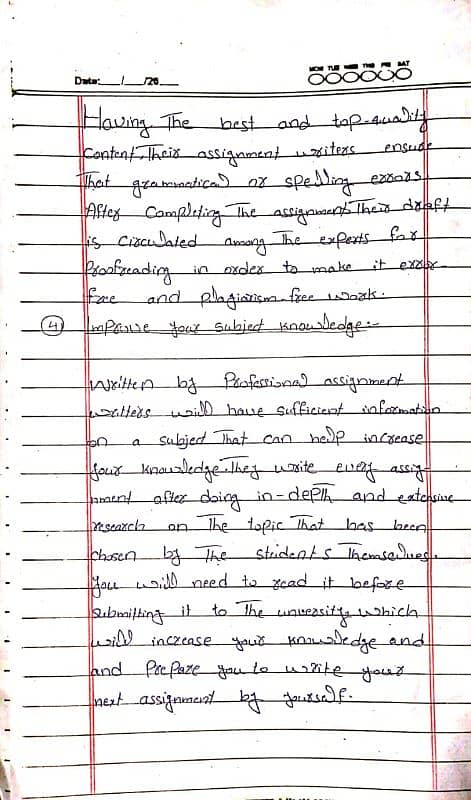 MON TUE WED THU FRI SAT
Date:___/___/20___
Having The best and top-quality
Content. Their assignment writers ensure
That grammatical or spelling errors.
After Completing The assignment Their draft
is Circulated among The experts for
Proofreading in order to make it error-
free and plagiarism-free work.
4 Improve your subject knowledge:-
Written by Professional assignment
writters will have sufficient information
on a subject That can help increase
your knowledge. They write every assig-
nment after doing in-depth and extensive
research on The topic That has been
chosen by The stridents Themselves.
you will need to read it before
submitting it to The university, which
will increase your knowledge and
and Prepare you to write your
next assignment by yourself.